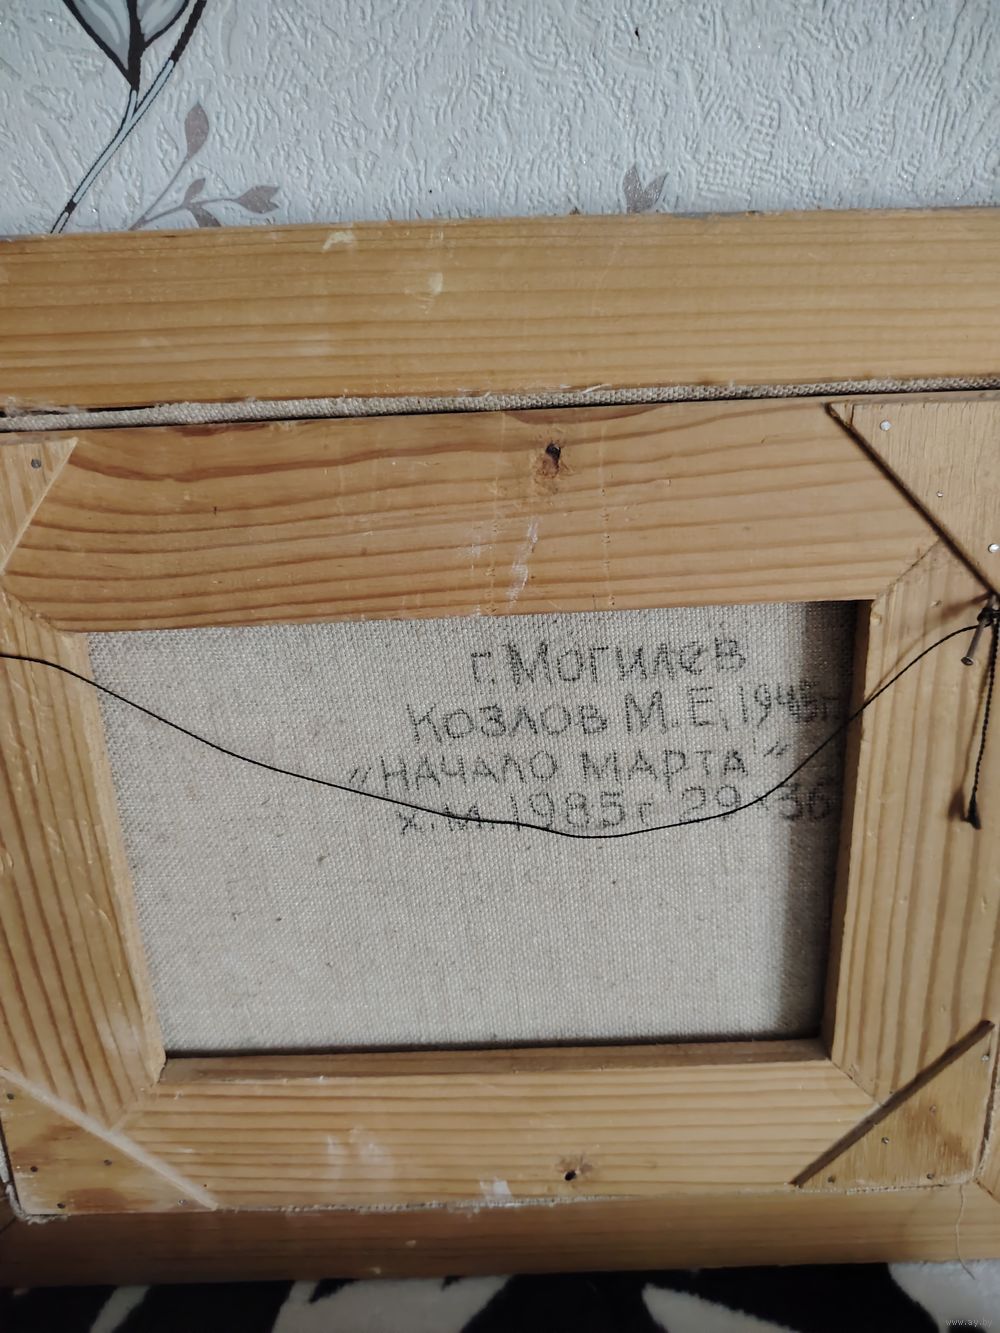 г. Могилев
Козлов М.Е, 1945г
"НАЧАЛО МАРТА"
х.м. 1985г 29×36
www.ay.by